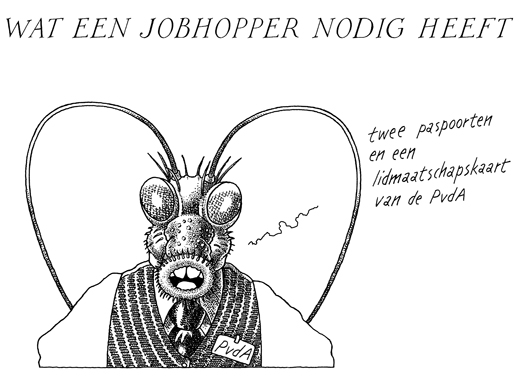 WAT EEN JOBHOPPER NODIG HEEFT
twee paspoorten
en een
lidmaatschapskaart
van de PvdA
PvdA